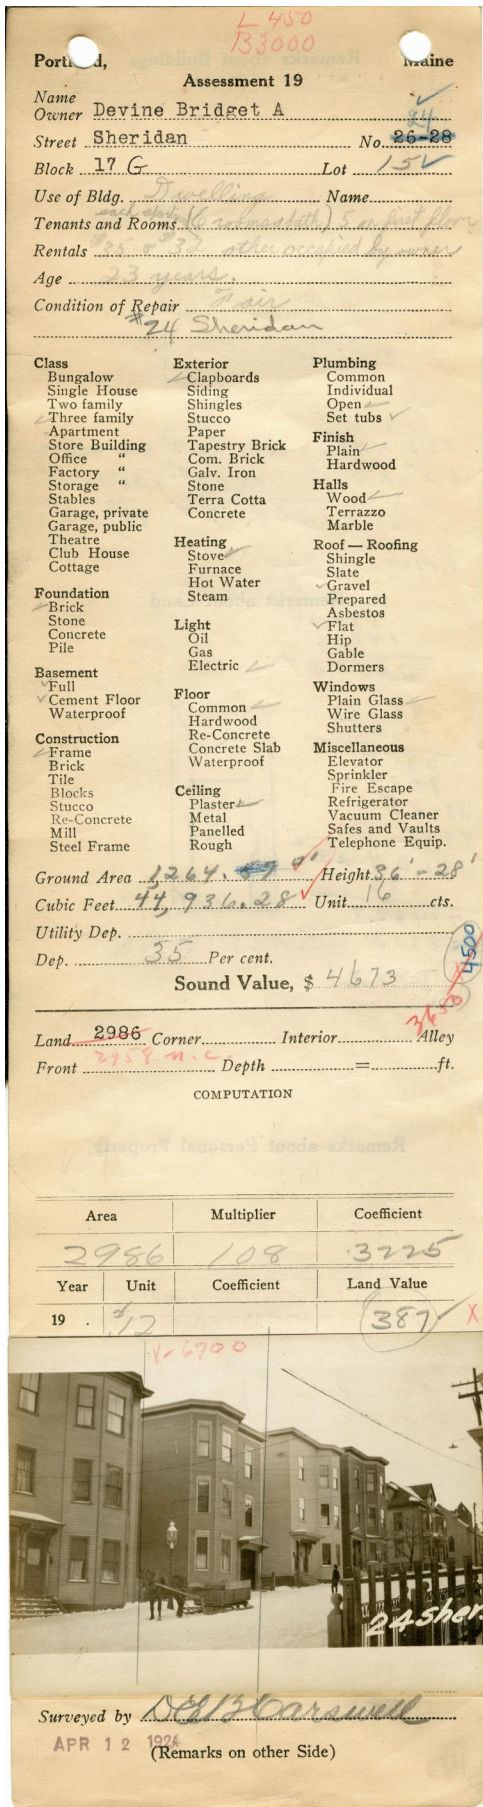 L 450
B 3000
Portland, Maine
Assessment 19
Name
Owner Devine Bridget A
24
Street Sheridan No. 26-28
Block 17 G Lot 15
Use of Bldg. Dwelling Name
each apartment
Tenants and Rooms (6 rooms & bath) 5 on first floor
Rentals $35 & $32 other occupied by owner
Age 23 years.
Condition of Repair Fair
#24 Sheridan
Class
Bungalow
Single House
Two family
Three family
Apartment
Store Building
Office "
Factory "
Storage "
Stables
Garage, private
Garage, public
Theatre
Club House
Cottage
Foundation
Brick
Stone
Concrete
Pile
Basement
Full
Cement Floor
Waterproof
Construction
Frame
Brick
Tile
Blocks
Stucco
Re-Concrete
Mill
Steel Frame
Exterior
Clapboards
Siding
Shingles
Stucco
Paper
Tapestry Brick
Com. Brick
Galv. Iron
Stone
Terra Cotta
Concrete
Heating
Stove
Furnace
Hot Water
Steam
Light
Oil
Gas
Electric
Floor
Common
Hardwood
Re-Concrete
Concrete Slab
Waterproof
Ceiling
Plaster
Metal
Panelled
Rough
Plumbing
Common
Individual
Open
Set tubs
Finish
Plain
Hardwood
Halls
Wood
Terrazzo
Marble
Roof — Roofing
Shingle
Slate
Gravel
Prepared
Asbestos
Flat
Hip
Gable
Dormers
Windows
Plain Glass
Wire Glass
Shutters
Miscellaneous
Elevator
Sprinkler
Fire Escape
Refrigerator
Vacuum Cleaner
Safes and Vaults
Telephone Equip.
Ground Area 1,264. Height 36' - 28'
Cubic Feet 44,936.28 Unit 16 cts.
Utility Dep.
Dep. 35 Per cent.
4500
Sound Value, $ 4673
3650
Land 2986 Corner Interior Alley
2958 n.c.
Front Depth = ft.
COMPUTATION
Area Multiplier Coefficient
2986 108 3225
Year Unit Coefficient Land Value
19 . 12 387 X
V-6700
24 Sher
Surveyed by
APR 12 1924
(Remarks on other Side)